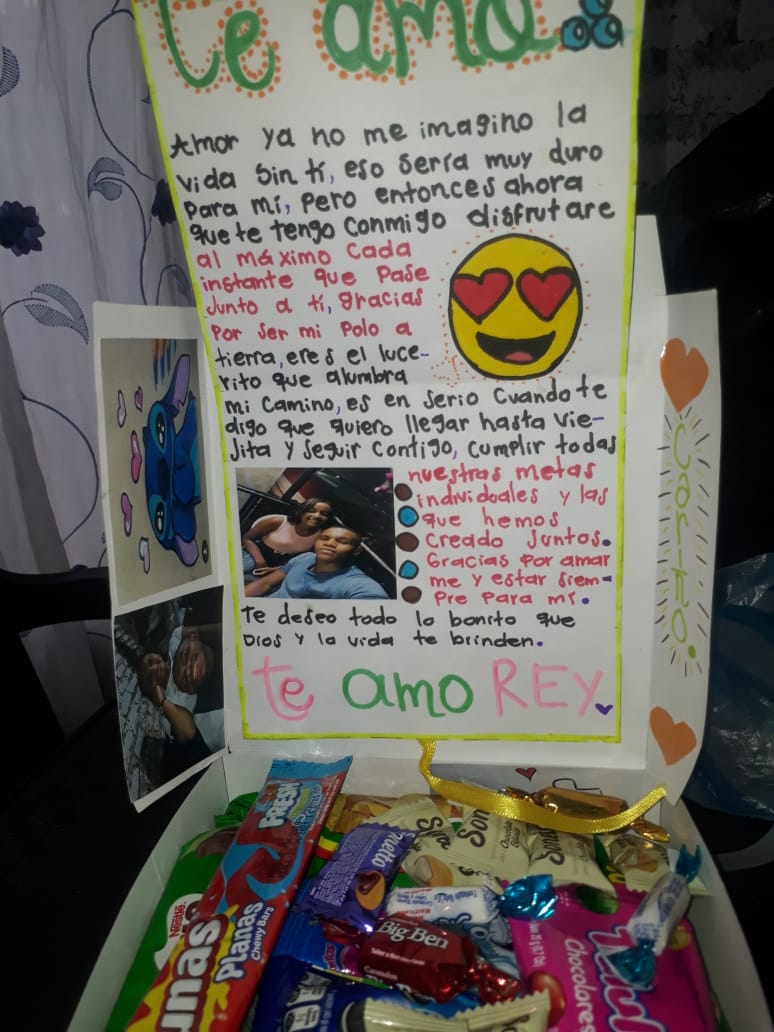 te amo
Amor ya no me imagino la
vida sin tí, eso serra muy duro
para mí, pero entonces ahora
que te tengo conmigo disfrutare
al máximo cada
instante que pase
junto a ti, gracias
por ser mi polo a
tierra, eres el luce-
rito que alumbra
mi camino, es en serio cuando te
digo que quiero llegar hasta vie-
jita y seguir contigo, cumplir todas
nuestras metas
individuales y las
que hemos
creado juntos.
Gracias por amar
me y estar siem-
pre para mí.
Te deseo todo lo bonito que
Dios y la vida te brinden.
te amo REY
Cariño
FRESH
Nestlé
unas
Planas
Chewy Bars
Big Ben
Chocolores